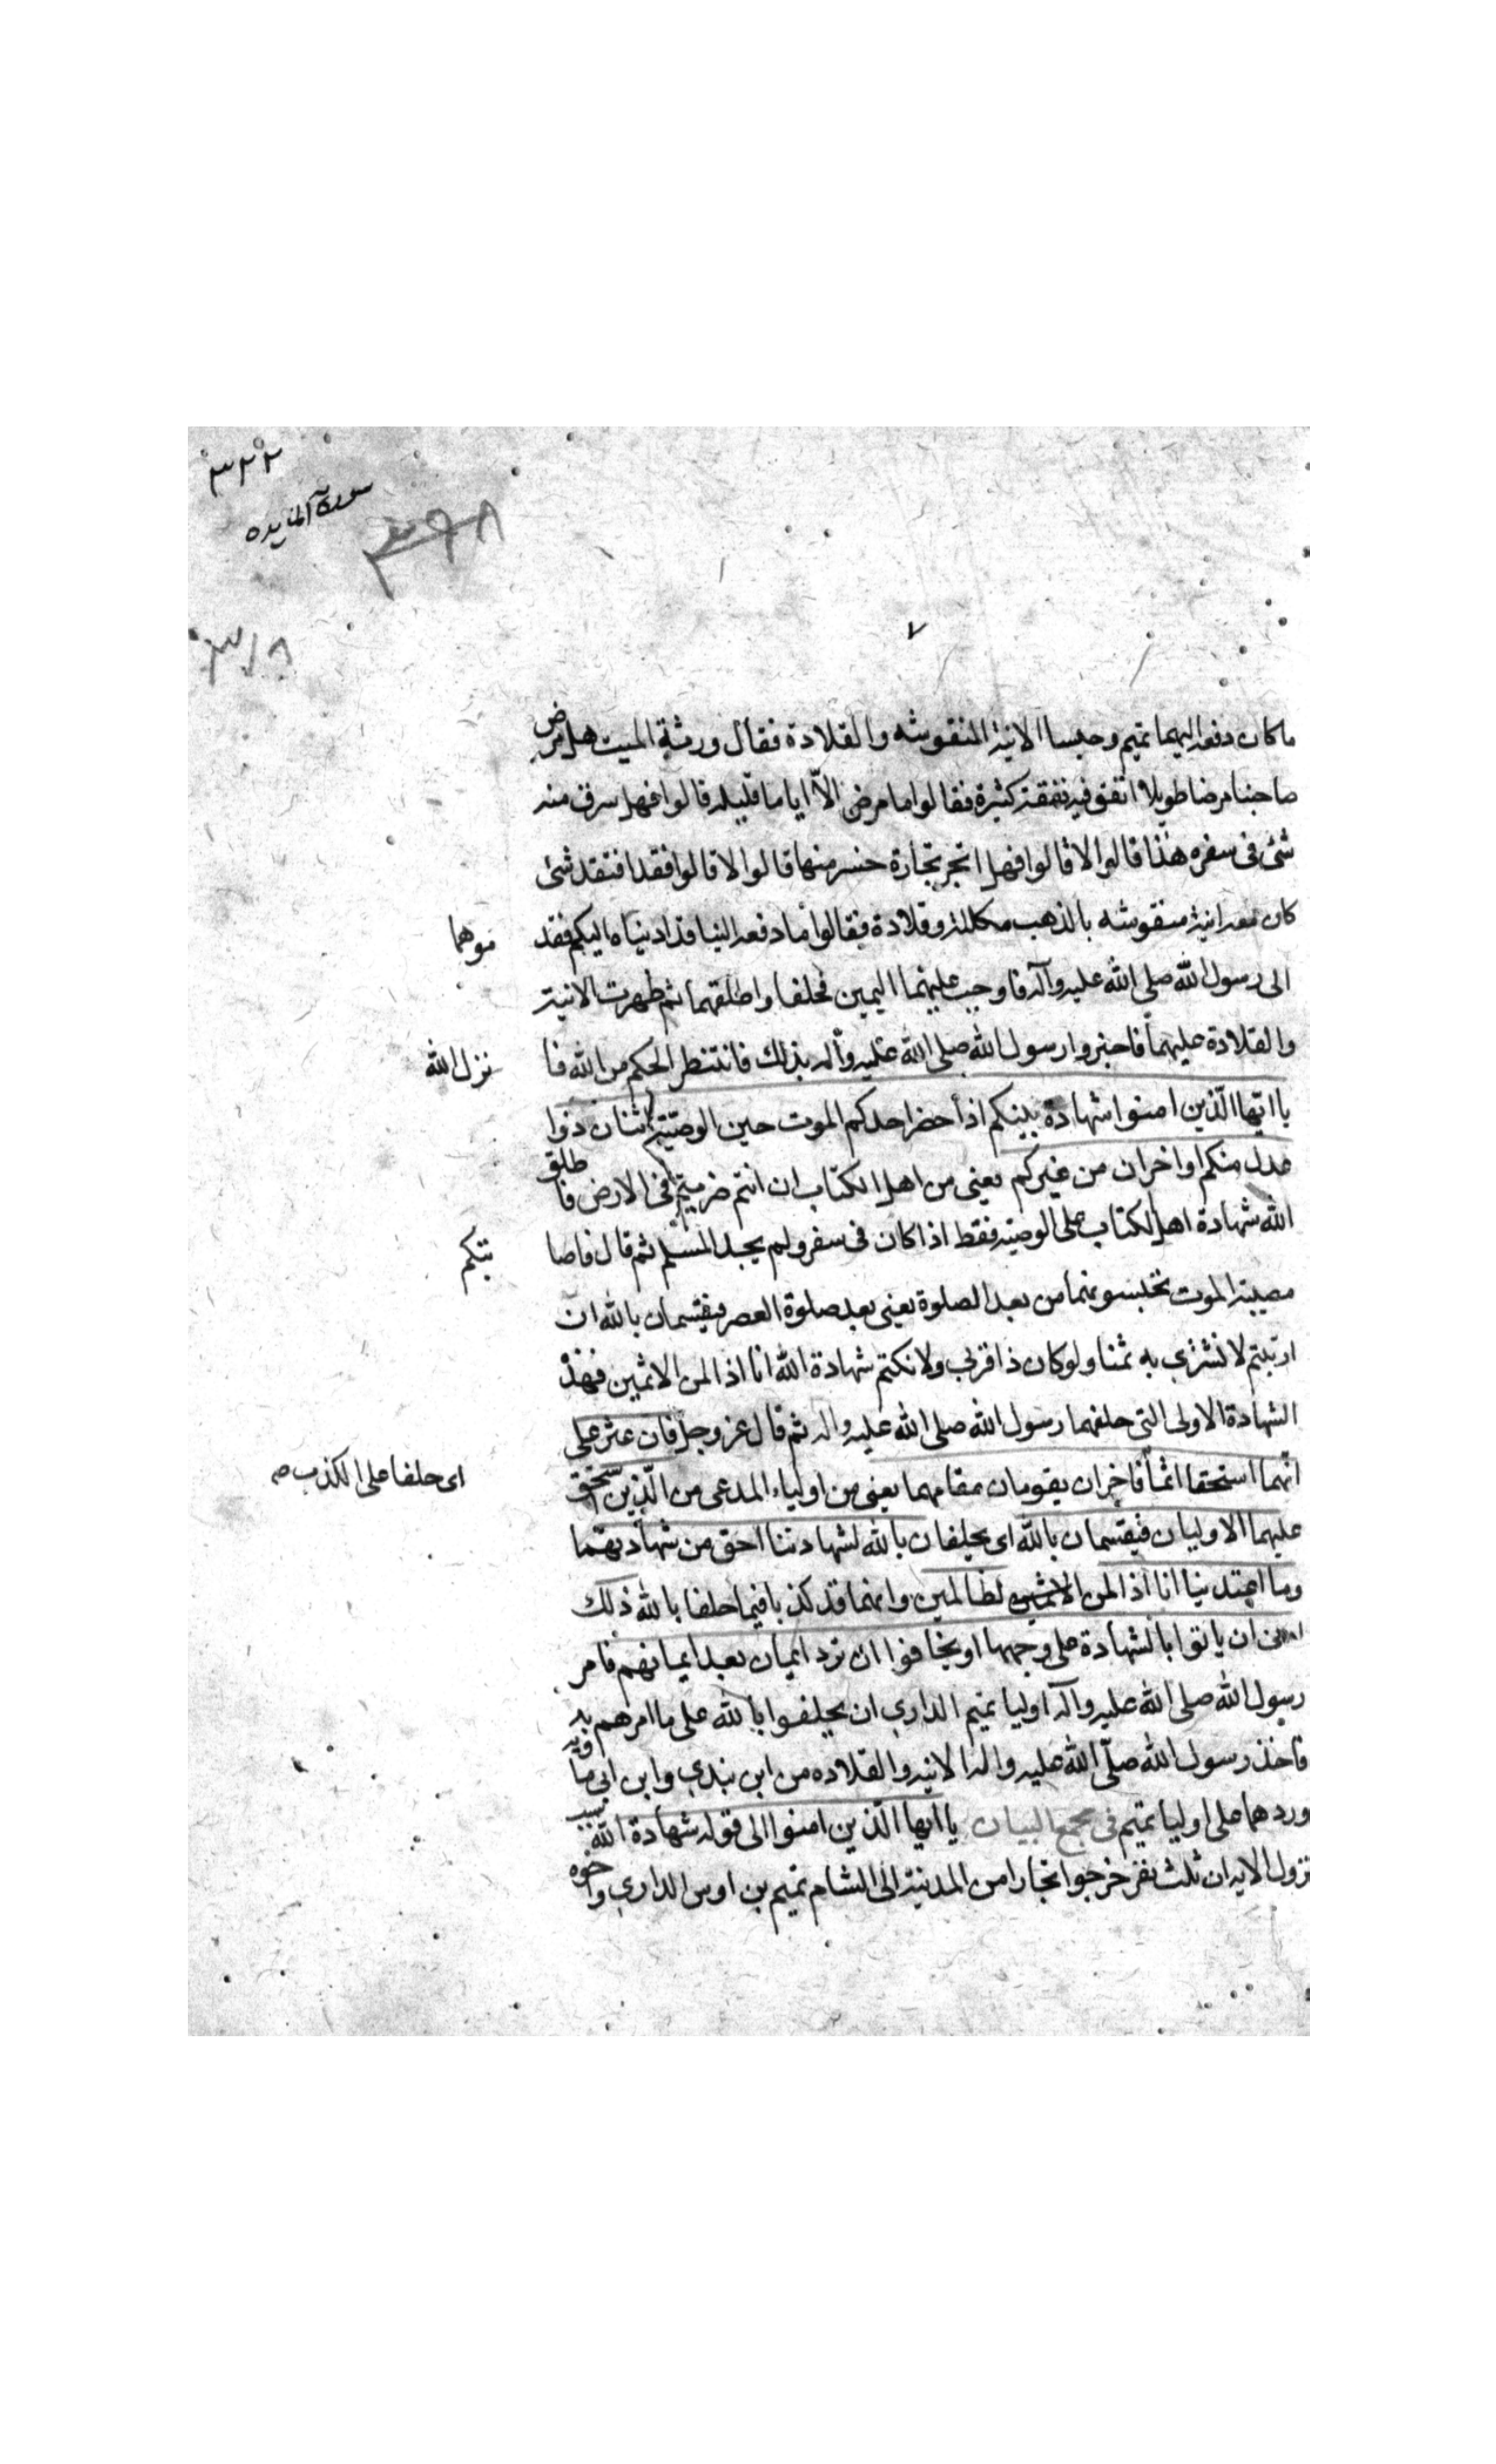 ٣٢٢
سورة المایده
٣٩٨
٣١٨
٧
ما كان دفعه اليهما تميم وحبسا الانية المنقوشه والقلادة فقال ورثة الميت هل مرض
صاحبنا مرضا طويلا انفق فيه نفقة كثيرة فقالوا ما مرض الّا اياما قليله قالوا فهل سرق منه
شئ فى سفره هذا قالوا لا قالوا فهل اتجر تجارة خسر منها قالوا لا قالوا فقد افتقد شئ
كان معه انية منقوشه بالذهب مكللة وقلادة فقالوا ما دفعه الينا قد اديناه اليكم فقد
موهما
الى رسول الله صلى الله عليه وآله فاوجب عليهما اليمين فحلفا واطلقهما ثم ظهرت الانية
والقلادة عليهما فاخبروا رسول الله صلى الله عليه وآله بذلك فانتظر الحكم من الله فا
نزل الله
يا ايها الّذين امنوا شهادة بينكم اذا حضر احدكم الموت حين الوصية اثنان ذوا
عدل منكم او اخران من غيركم يعنى من اهل الكتاب ان انتم ضربتم فى الارض فا طلق
الله شهادة اهل الكتاب على الوصية فقط اذا كان فى سفر ولم يجد المسلم ثم قال فاصا
بتكم
مصيبة الموت تحبسونهما من بعد الصلوة يعنى بعد صلوة العصر فيقسمان بالله ان
ارتبتم لا نشترى به ثمنا ولو كان ذا قربى ولا نكتم شهادة الله انا اذا لمن الاثمين فهذ
الشهادة الاولى التى حلفهما رسول الله صلى الله عليه واله ثم قال عز وجل فان عثر على
انهما استحقا اثمًا فاخران يقومان مقامهما يعنى من اولياء المدعى من الّذين استحق
اى حلفا على الكذب صه
عليهما الاوليان فيقسمان بالله اى يحلفان بالله لشهادتنا احق من شهادتهما
وما اعتدينا انا اذا لمن الاثمين لظالمين وانهما قد كذبا فيما حلفا بالله ذلك
ادنى ان ياتوا بالشهادة على وجهها او يخافوا ان ترد ايمان بعد ايمانهم فامر
رسول الله صلى الله عليه وآله اوليا تميم الدارى ان يحلفوا بالله على ما امرهم به
فاخذ رسول الله صلّى الله عليه واله الانيه والقلاده من ابن بندى وابن ابى ما ويه
وردهما على اوليا تميم فى مجمع البيان يا ايها الّذين امنوا الى قوله شهادة الله
نزول الايه ان ثلث نفر خرجوا تجارا من المدينة الى الشام تميم بن اوس الدارى واخوه